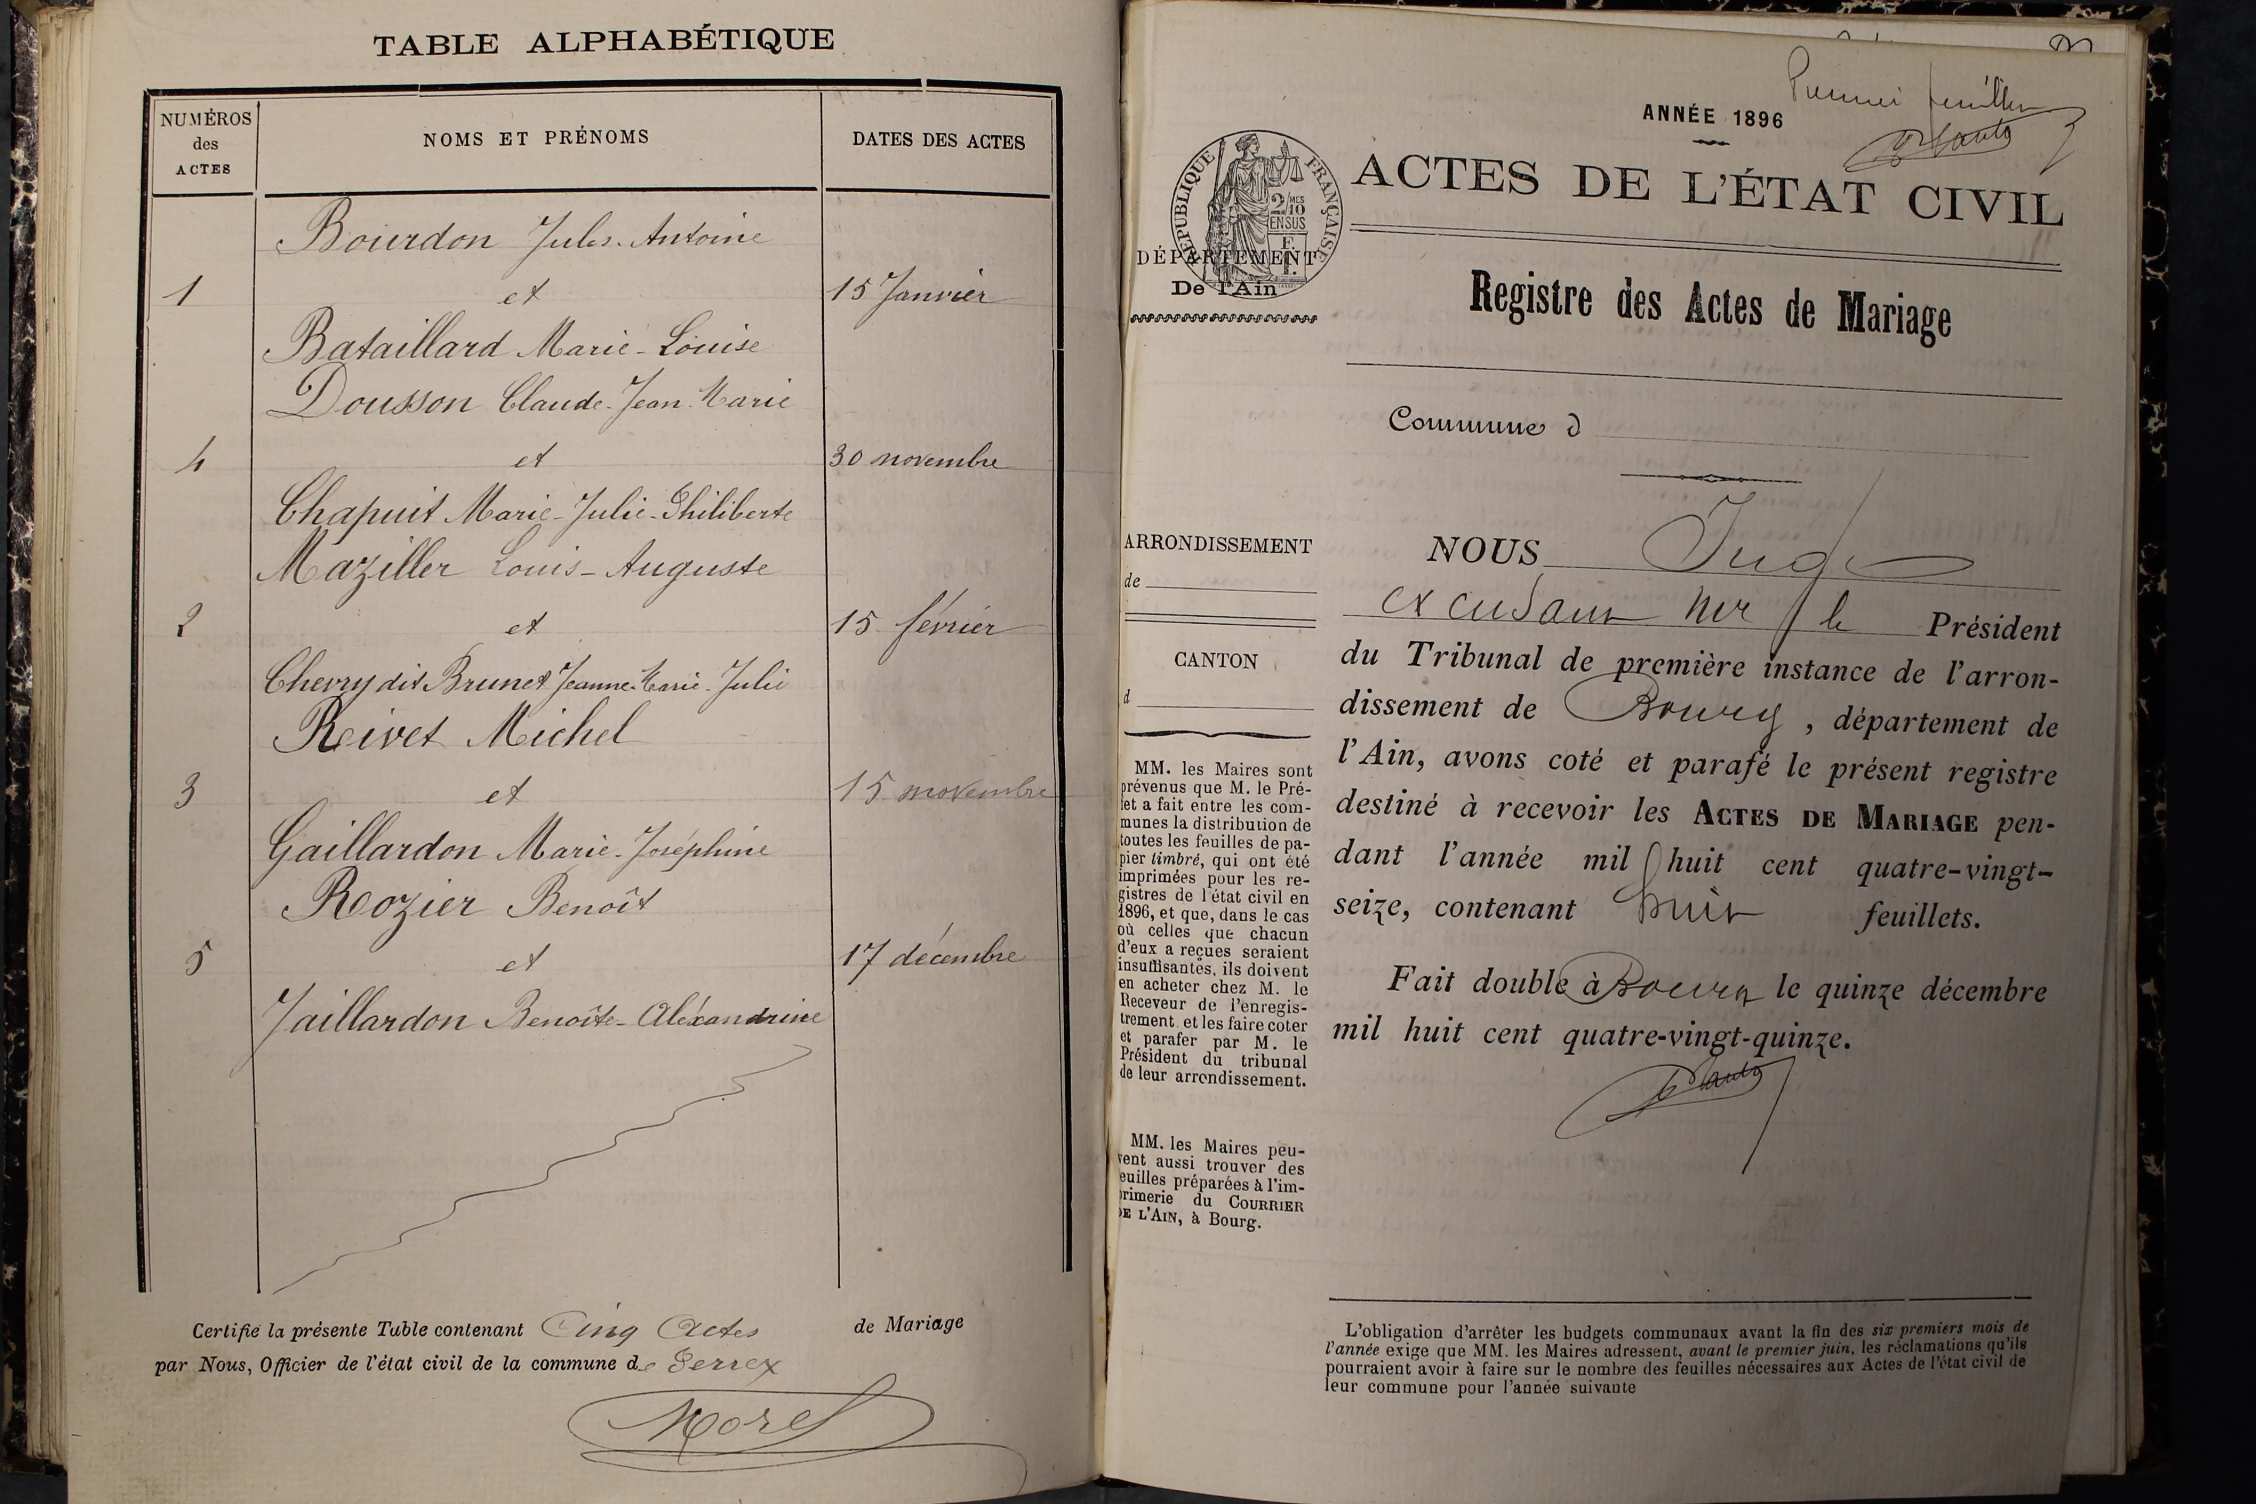 TABLE ALPHABÉTIQUE
NUMÉROS
des
ACTES
NOMS ET PRÉNOMS
DATES DES ACTES
Bourdon Jules-Antoine
1 et 15 Janvier
Bataillard Marie-Louise
Dousson Claude-Jean-Marie
4 et 30 novembre
Chapuit Marie-Julie-Philiberte
Maziller Louis-Auguste
2 et 15 février
Chevry dit Brunet Jeanne-Marie-Julie
Reivet Michel
3 et 15 novembre
Gaillardon Marie-Joséphine
Rozier Benoît
5 et 17 décembre
Jaillardon Benoîte-Aléxandrine
Certifié la présente Table contenant Cinq Actes de Mariage
par Nous, Officier de l'état civil de la commune de Perrex
Morel
Premier feuillet
ANNÉE 1896
RÉPUBLIQUE FRANÇAISE
2 MES
10
EN SUS
ACTES DE L'ÉTAT CIVIL
DÉPARTEMENT
De l'Ain
Registre des Actes de Mariage
Commune d
ARRONDISSEMENT
de
CANTON
d
MM. les Maires sont
prévenus que M. le Pré-
fet a fait entre les com-
munes la distribution de
toutes les feuilles de pa-
pier timbré, qui ont été
imprimées pour les re-
gistres de l'état civil en
1896, et que, dans le cas
où celles que chacun
d'eux a reçues seraient
insuffisantes, ils doivent
en acheter chez M. le
Receveur de l'enregis-
trement et les faire coter
et parafer par M. le
Président du tribunal
de leur arrondissement.
MM. les Maires peu-
vent aussi trouver des
feuilles préparées à l'im-
primerie du COURRIER
DE L'AIN, à Bourg.
NOUS Juge
le Président
du Tribunal de première instance de l'arron-
dissement de Bourg, département de
l'Ain, avons coté et parafé le présent registre
destiné à recevoir les ACTES DE MARIAGE pen-
dant l'année mil huit cent quatre-vingt-
seize, contenant huit feuillets.
Fait double à Bourg le quinze décembre
mil huit cent quatre-vingt-quinze.
L'obligation d'arrêter les budgets communaux avant la fin des six premiers mois de
l'année exige que MM. les Maires adressent, avant le premier juin, les réclamations qu'ils
pourraient avoir à faire sur le nombre des feuilles nécessaires aux Actes de l'état civil de
leur commune pour l'année suivante